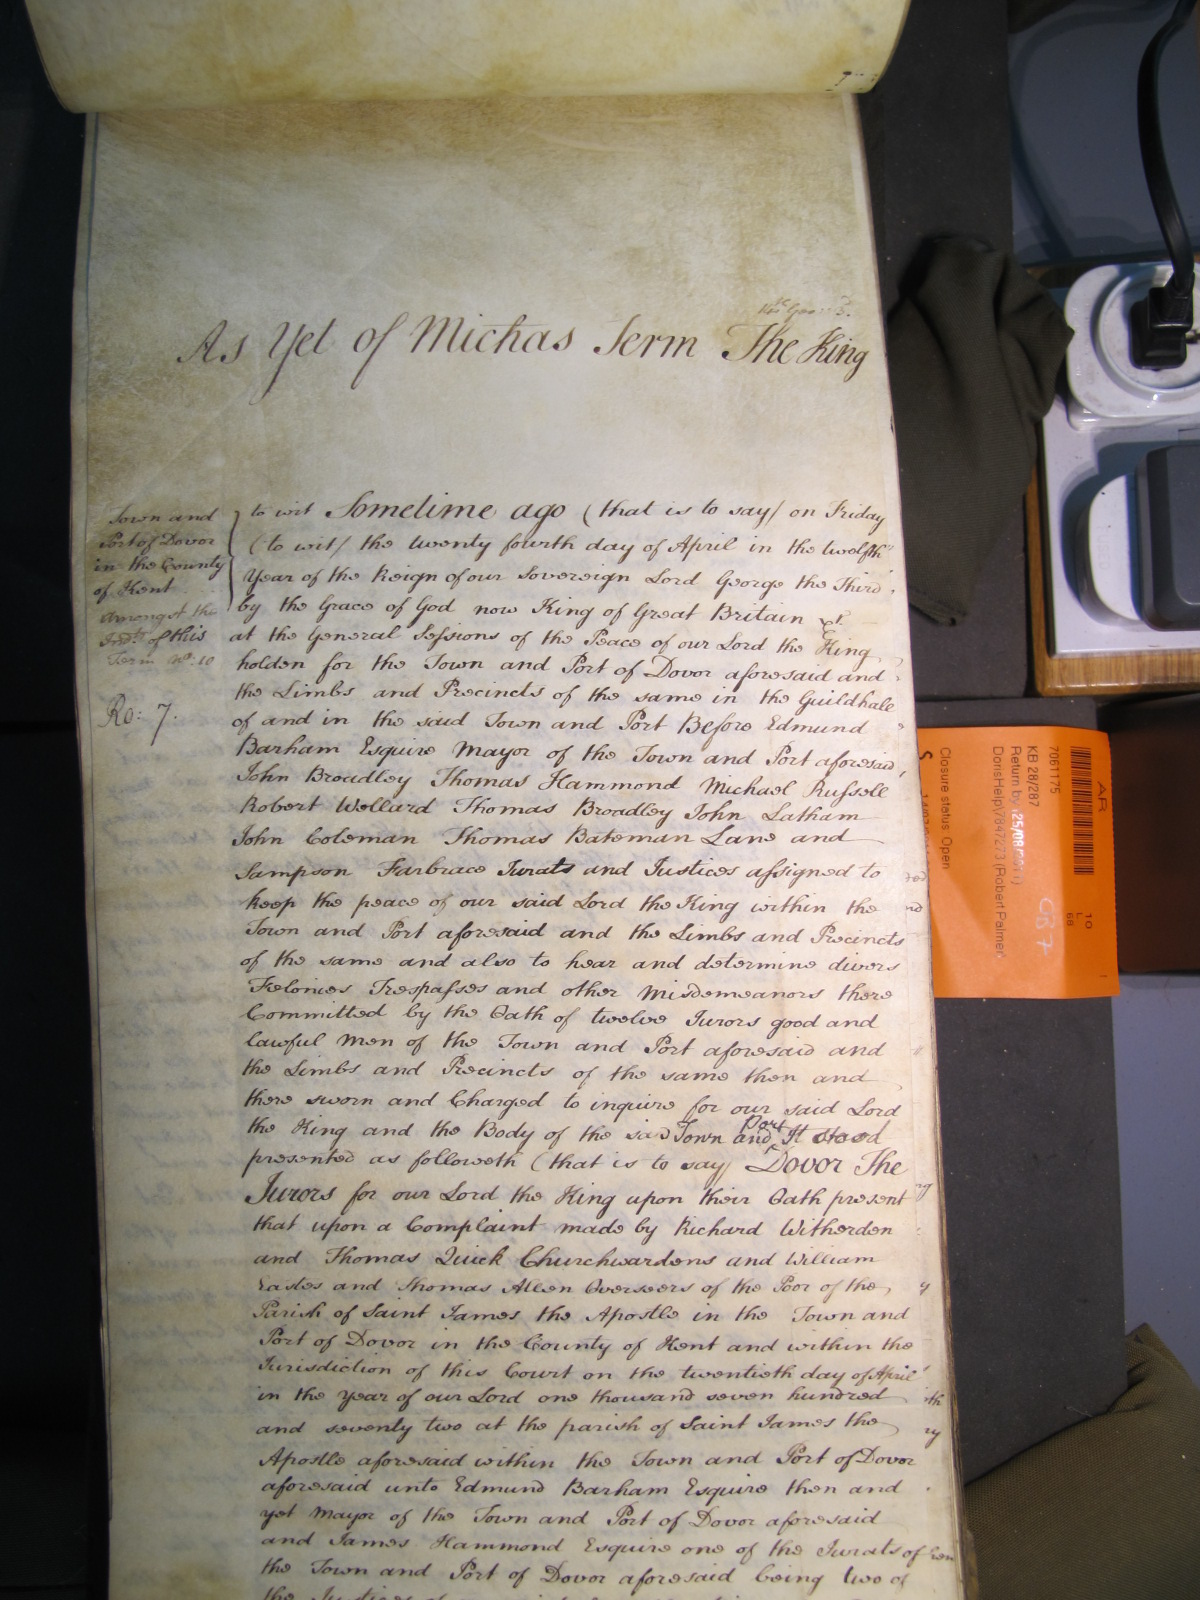 14th Geo: 3.
As Yet of Michas Term The King
Town and
Port of Dovor
in the County
of Kent
Amongst the
Ind.ts of this
Term N.o 10
Ro: 7.
to wit Sometime ago (that is to say/ on Friday
(to wit/ the twenty fourth day of April in the twelfth
Year of the Reign of our Sovereign Lord George the Third
by the Grace of God now King of Great Britain &c.
at the General Sessions of the Peace of our Lord the King
holden for the Town and Port of Dovor aforesaid and
the Limbs and Precincts of the same in the Guildhall
of and in the said Town and Port Before Edmund
Barham Esquire Mayor of the Town and Port aforesaid
John Broadley Thomas Hammond Michael Russell
Robert Wellard Thomas Broadley John Latham
John Coleman Thomas Bateman Lane and
Sampson Farbrace Jurats and Justices assigned to
keep the peace of our said Lord the King within the
Town and Port aforesaid and the Limbs and Precincts
of the same and also to hear and determine divers
Felonies Trespasses and other Misdemeanors there
Committed by the Oath of twelve Jurors good and
lawful Men of the Town and Port aforesaid and
the Limbs and Precincts of the same then and
there sworn and Charged to inquire for our said Lord
the King and the Body of the said Town and Port It stood
presented as followeth (that is to say/ Dovor The
Jurors for our Lord the King upon their Oath present
that upon a Complaint made by Richard Witherden
and Thomas Quick Churchwardens and William
Eastes and Thomas Allen Overseers of the Poor of the
Parish of Saint James the Apostle in the Town and
Port of Dovor in the County of Kent and within the
Jurisdiction of this Court on the twentieth day of April
in the Year of our Lord one thousand seven hundred
and seventy two at the parish of Saint James the
Apostle aforesaid within the Town and Port of Dovor
aforesaid unto Edmund Barham Esquire then and
yet Mayor of the Town and Port of Dovor aforesaid
and James Hammond Esquire one of the Jurats of
the Town and Port of Dovor aforesaid being two of
the Justices of
AR
7061175
KB 28/287
Return by (25/08/2011)
DorisHelp\7847273 (Robert Palmer)
Closure status: Open
10
L
68